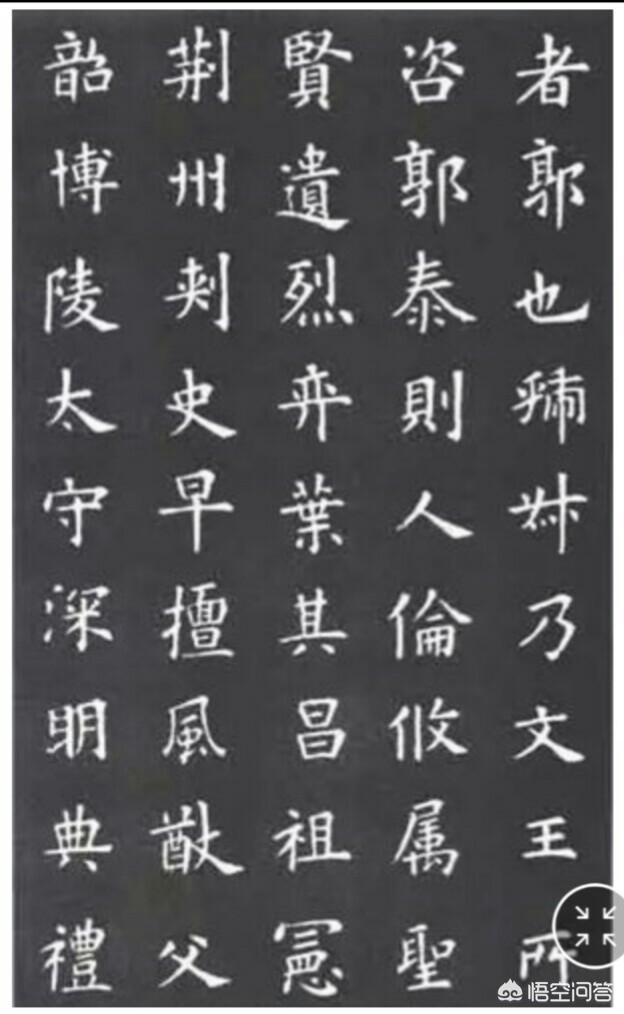 者郭也虢叔乃文王所
咨郭泰則人倫攸属聖
賢遺烈弈葉其昌祖憲
荆州刾史早擅風猷父
韶博陵太守深明典禮
悟空问答